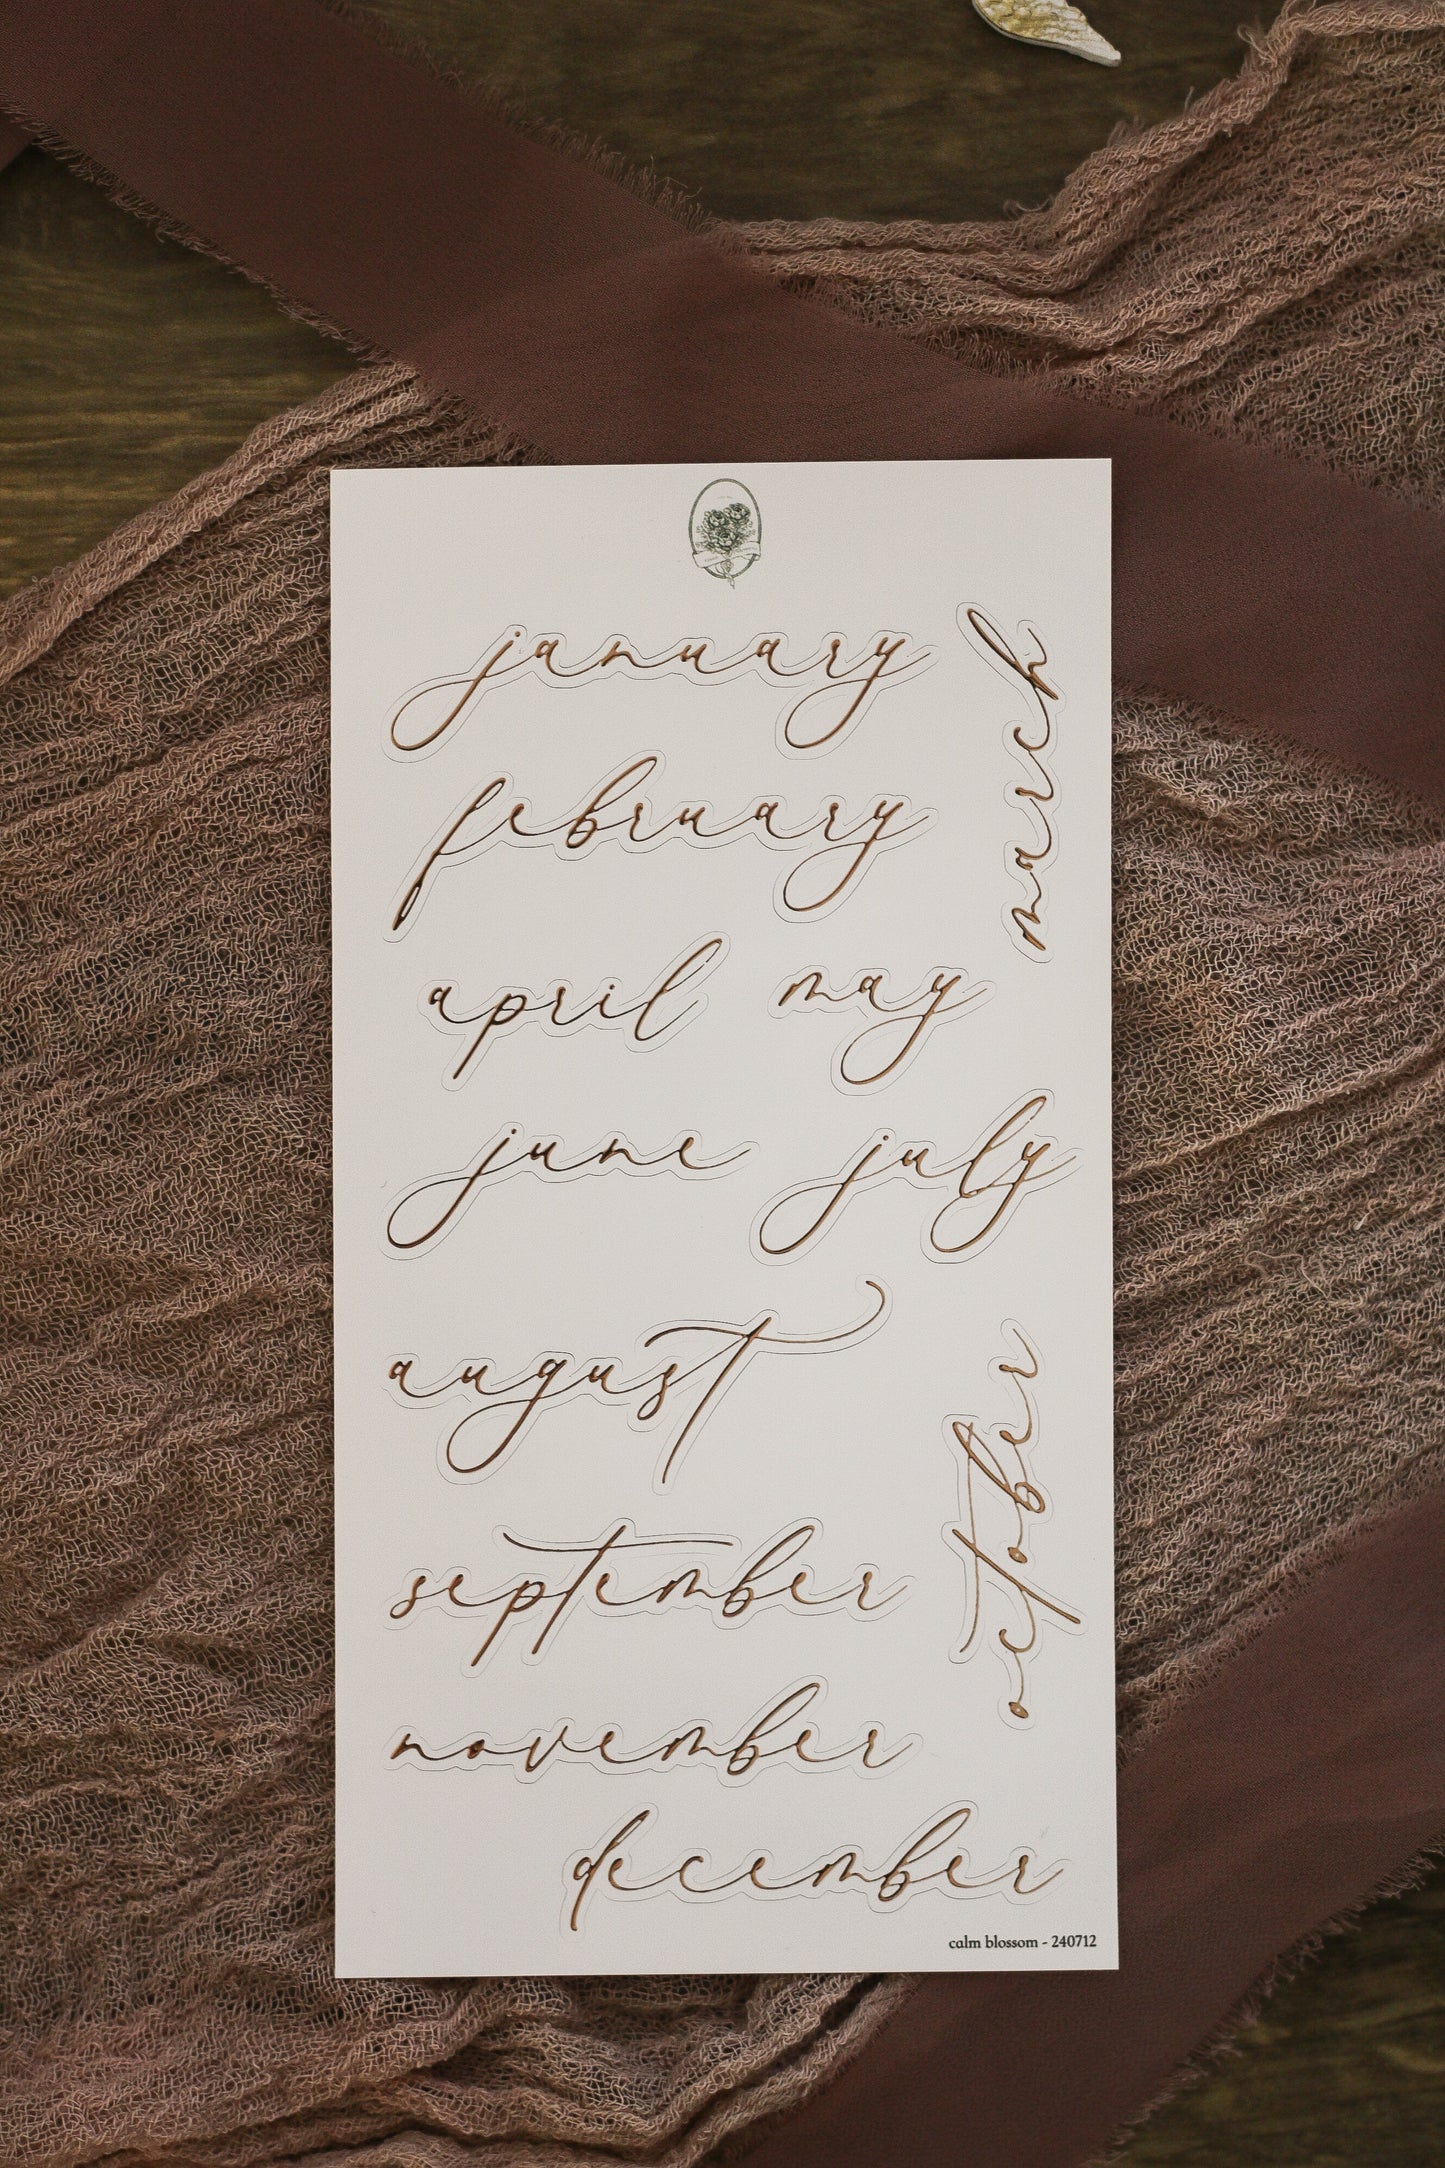 january
march
february
april
may
june
july
august
october
september
november
december
calm blossom - 240712